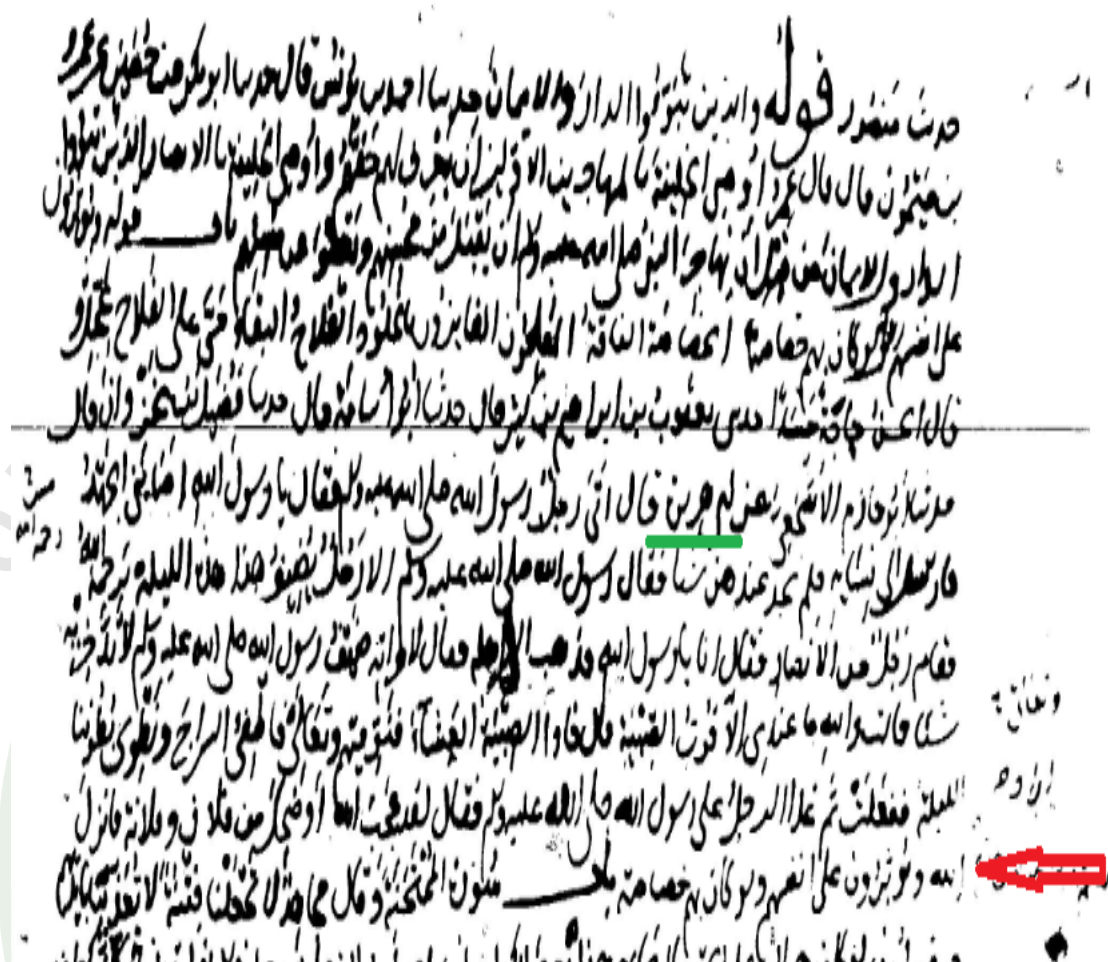 حدث منصور قوله والذين تبوؤا الدار والايمان حدثنا احمد بن يونس قال حدثنا ابو بكر عن حصين عن عمرو
بن ميمون قال قال عمر اوصي الخليفة بالمهاجرين الاولين ان يعرف لهم حقهم واوصي الخليفة بالانصار الذين تبوؤا
الدار والايمان من قبل ان يهاجر النبي صلى الله عليه وسلم ان يقبل من محسنهم ويعفوا عن مسيئهم باب قوله ويؤثرون
على انفسهم ولو كان بهم خصاصة الخصاصة الفاقة المفلحون الفايزون بالخلود الفلاح البقاء حي على الفلاح عجل و
قال الحسن حاجة حسدا حدثني يعقوب بن ابراهيم بن كثير قال حدثنا ابو اسامة قال حدثنا فضيل بن غزوان قال
حدثنا ابو حازم الاشجعي عن ابي هريرة قال اتى رجل رسول الله صلى الله عليه وسلم فقال يا رسول الله اصابني الجهد
فارسل الى نسايه فلم يجد عندهن شيا فقال رسول الله صلى الله عليه وسلم الا رجل يضيف هذا هذه الليلة يرحمه الله
فقام رجل من الانصار فقال انا يا رسول الله فذهب الى اهله فقال لامراته ضيف رسول الله صلى الله عليه وسلم لا تدخريه
شيا قالت والله ما عندي الا قوت الصبية قال فاذا اراد الصبية العشاء فنوميهم وتعالي فاطفئي السراج ونطوي بطوننا
وتعالى
الليلة ففعلت ثم غدا الرجل على رسول الله صلى الله عليه وسلم فقال لقد عجب الله او ضحك من فلان وفلانة فانزل
الله ويؤثرون على انفسهم ولو كان بهم خصاصة باب سورة الممتحنة وقال مجاهد لا تجعلنا فتنة لا تعذبنا بايديهم